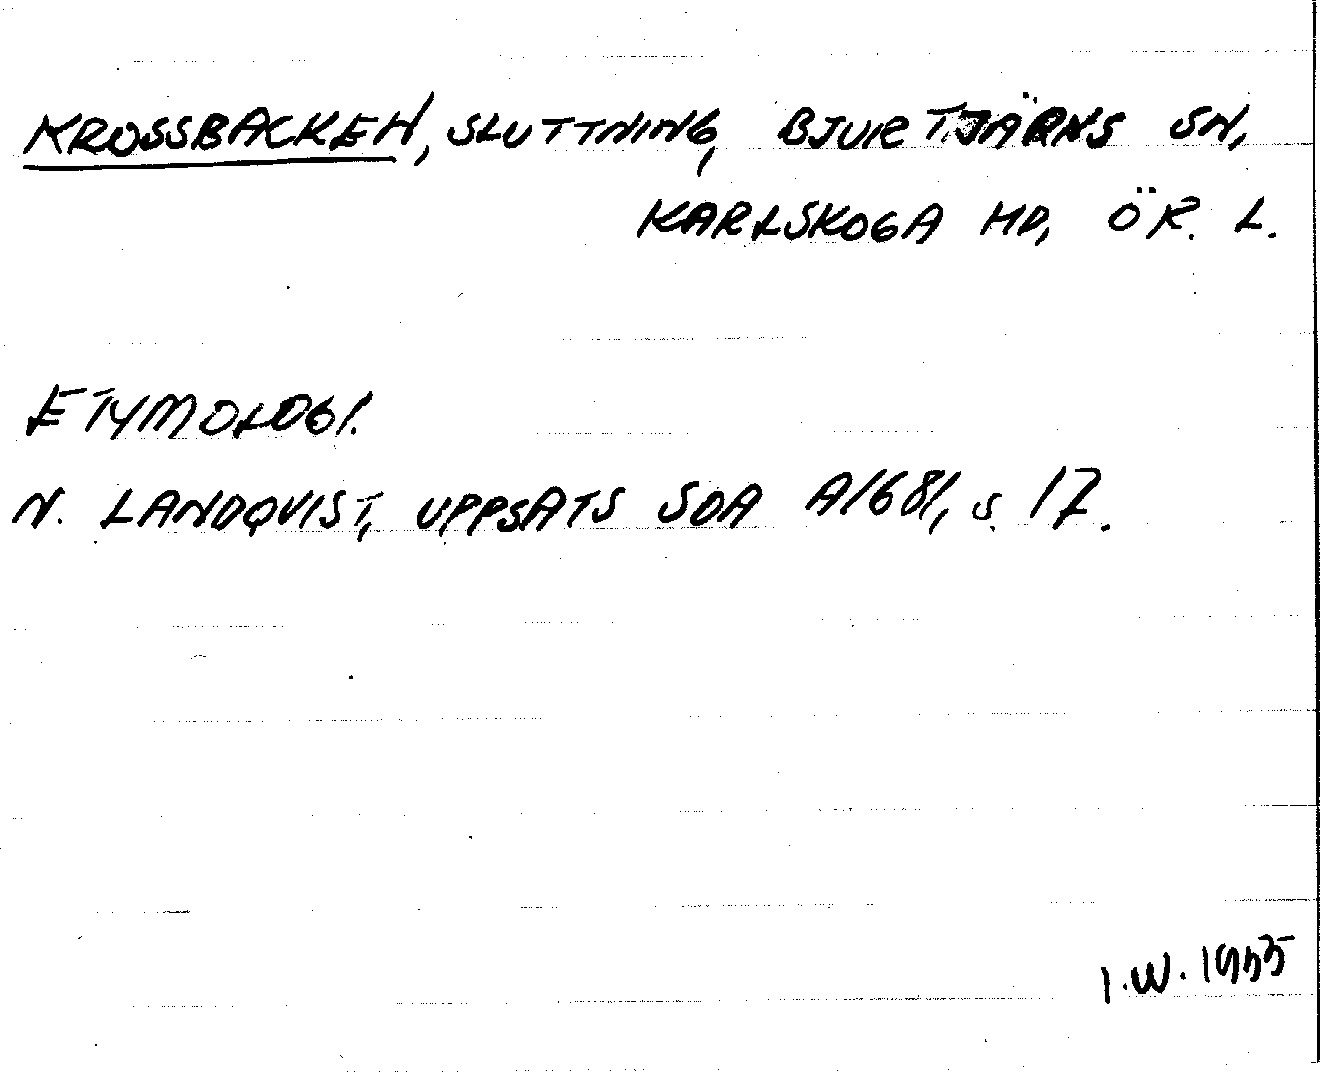 KROSSBACKEN, SLUTTNING, BJURTJÄRNS SN,
KARLSKOGA HD, ÖR. L.
ETYMOLOGI.
N. LANDQVIST, UPPSATS SOA A1681, S. 17.
I.W. 1955